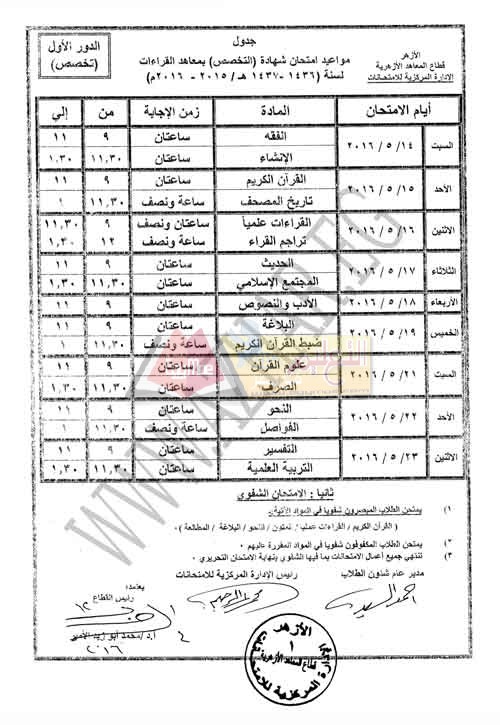 الأزهر
قطاع المعاهد الأزهرية
الإدارة المركزية للامتحانات
جدول
مواعيد امتحان شهادة (التخصص) بمعاهد القراءات
لسنة (١٤٣٦-١٤٣٧ هـ / ٢٠١٥ - ٢٠١٦م)
الدور الأول
(تخصص)
أيام الامتحان المادة زمن الإجابة من إلي
السبت ١٤ / ٥ / ٢٠١٦ الفقه ساعتان ٩ ١١
الإنشاء ساعتان ١١,٣٠ ١,٣٠
الأحد ١٥ / ٥ / ٢٠١٦ القرآن الكريم ساعتان ٩ ١١
تاريخ المصحف ساعة ونصف ١١,٣٠ ١
الاثنين ١٦ / ٥ / ٢٠١٦ القراءات علمياً ساعتان ونصف ٩ ١١,٣٠
تراجم القراء ساعة ونصف ١٢
الثلاثاء ١٧ / ٥ / ٢٠١٦ الحديث ساعتان ٩ ١١
المجتمع الإسلامي ساعتان ١١,٣٠ ١,٣٠
الأربعاء ١٨ / ٥ / ٢٠١٦ الأدب والنصوص ساعتان ٩ ١١
الخميس ١٩ / ٥ / ٢٠١٦ البلاغة ساعتان ٩ ١١
ضبط القرآن الكريم ساعة ونصف ١١,٣٠ ١
السبت ٢١ / ٥ / ٢٠١٦ علوم القرآن ساعتان ٩ ١١
الصرف ساعتان ١١,٣٠ ١,٣٠
الأحد ٢٢ / ٥ / ٢٠١٦ النحو ساعتان ٩ ١١
الفواصل ساعة ونصف ١١,٣٠ ١
الاثنين ٢٣ / ٥ / ٢٠١٦ التفسير ساعتان ٩ ١١
التربية العلمية ساعتان ١١,٣٠ ١,٣٠
ثانيا : الامتحان الشفوي
١) يمتحن الطلاب المبصرون شفويا في المواد الآتية:
( القرآن الكريم / القراءات عمليا / متون / النحو / البلاغة / المطالعة )
٢) يمتحن الطلاب المكفوفون شفويا في المواد المقررة عليهم
٣) تنتهي جميع أعمال الامتحانات بما فيها الشفوي بنهاية الامتحان التحريري
مدير عام شئون الطلاب
رئيس الإدارة المركزية للامتحانات
يعتمد،
رئيس القطاع
أ.د/محمد أبو زيد الأمير
٢٠١٦
الأزهر
قطاع المعاهد الأزهرية
الإدارة المركزية للامتحانات
WWW.AZHAR.EG